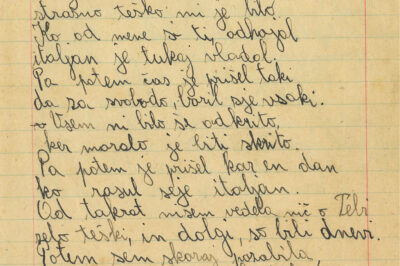 strašno teško mi je bilo
Ko od mene s ti odhajal
italjan je tukaj vladal
Pa potem čas je prišel taki
da za svobodo, boril sje vsaki.
Vsem ni bilo še odkrito,
ker moralo je biti skrito.
Pa potem je prišel kar en dan
ko rasul seje italjan.
Od takrat nisem vedela nič o Tebi
zelo teški, in dolgi, so bili dnevi.
Potem sem skoraj